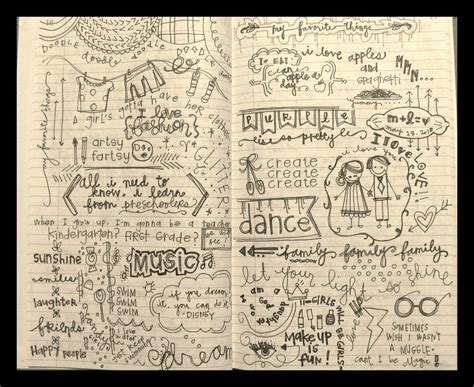 doodle
doodle
doodle
my favorite things
A girl's
gotta have her clothes
I love
fashion
artsy
fartsy
GLITTER
all i need to
know, i learn
from preschoolers
when I grow up, I'm gonna be a teacher
Kindergarten? First Grade?
we will
see!
sunshine
smiley
laughter
friends
Happy people
MUSIC
SWIM
SWIM
SWIM
SWIM
if you dream
it, you can do it
-DISNEY
dream
my favorite things
I ♥ to EAT!
apple a
day
i love apples
and
spaghetti
MMM...
yummy
PURPLE
is so pretty
m+l=♥
may 29, 2010
create
create
create
I love
LOVE!!
dance
family family family
let your light so shine
I am a
child
of
God
GIRLS
WILL BE GIRLS
Makeup
is fun!
love
SOMETIMES
I WISH I WASN'T
A MUGGLE-
Can't be Magic!